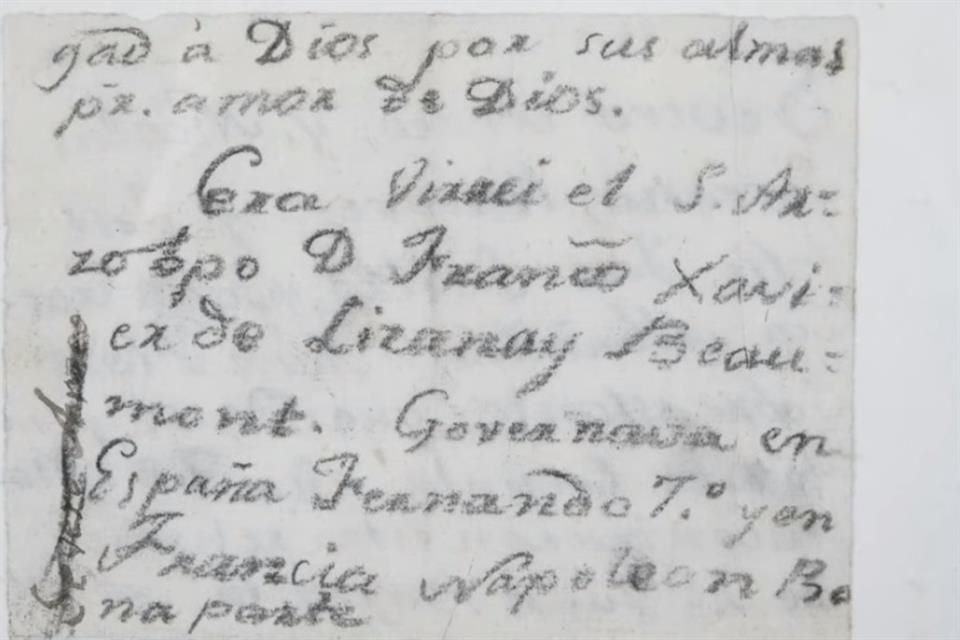 gad à Dios por sus almas
pr. amor de Dios.
Cera Virrei el S. Ar=
zobpo D Franco Xavi=
er de Lizanay Beau=
mont. Governava en
España Fernando 7.º y en
Francia Napoleon Bo
na parte